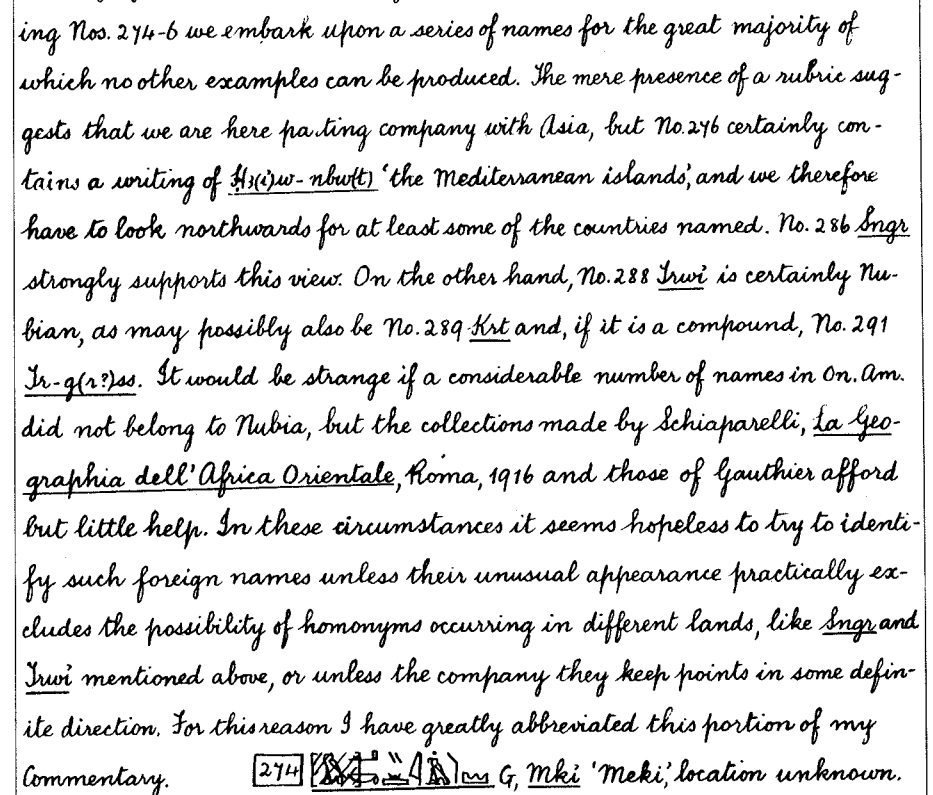 ing Nos. 274-6 we embark upon a series of names for the great majority of
which no other examples can be produced. The mere presence of a rubric sug-
gests that we are here parting company with Asia, but No. 276 certainly con-
tains a writing of Ḥꜣ(i)w-nbw(t) 'the Mediterranean islands', and we therefore
have to look northwards for at least some of the countries named. No. 286 Sngr
strongly supports this view. On the other hand, No. 288 Irwi is certainly Nu-
bian, as may possibly also be No. 289 Krt and, if it is a compound, No. 291
Ir-g(r?)ss. It would be strange if a considerable number of names in On. Am.
did not belong to Nubia, but the collections made by Schiaparelli, La Geo-
graphia dell' Africa Orientale, Roma, 1916 and those of Gauthier afford
but little help. In these circumstances it seems hopeless to try to identi-
fy such foreign names unless their unusual appearance practically ex-
cludes the possibility of homonyms occurring in different lands, like Sngr and
Irwi mentioned above, or unless the company they keep points in some defin-
ite direction. For this reason I have greatly abbreviated this portion of my
Commentary. 274 G, Mki 'Meki', location unknown.